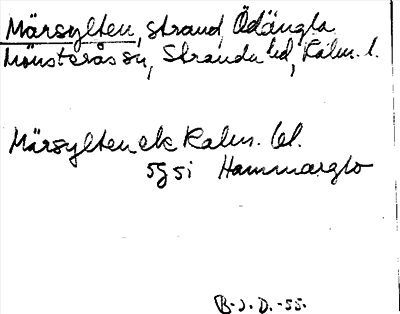 Märsylten, strand, Ödängla
Mönsterås sn, Stranda hd, Kalm. l.
Märsylten ek Kalm. bl.
5g 5i Hammarglo
B-J. D. -55.